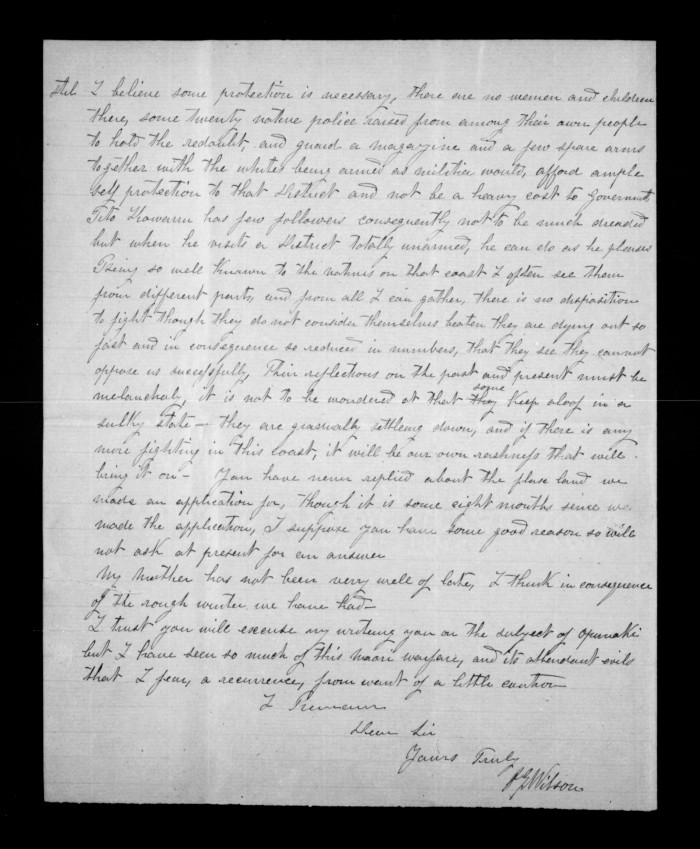 Still I believe some protection is necessary, there are no women and children
there, some twenty native police raised from among their own people
to hold the redoubt, and guard a magazine and a few spare arms
together with the whites being armed as militia would, afford ample
self protection to that District and not be a heavy cost to Government,
Tito Kowarru has few followers consequently not to be much dreaded
but when he visits a District totally unarmed, he can do as he pleases
Being so well known to the natives on that coast I often see them
from different parts, and from all I can gather, there is no disposition
to fight though they do not consider themselves beaten they are dying out so
fast and in consequence so reduced in numbers, that they see they cannot
oppose us successfully, Their reflections on the past and present must be
melancholy, it is not to be wondered at that some keep aloof in a
sulky state – they are gradually settling down, and if there is any
more fighting in this coast, it will be our own rashness that will
bring it on – You have never replied about the land we
made an application for, though it is some eight months since we
made the application, I suppose you have some good reason so will
not ask at present for an answer
My mother has not been very well of late, I think in consequence
of the rough winter we have had –
I trust you will excuse my writing you on the subject of Opunaki
but I have seen so much of this maori warfare, and its attendant evils
that I fear, a recurrence, from want of a little caution
I Remain
Dear Sir
Yours Truly
Wilson